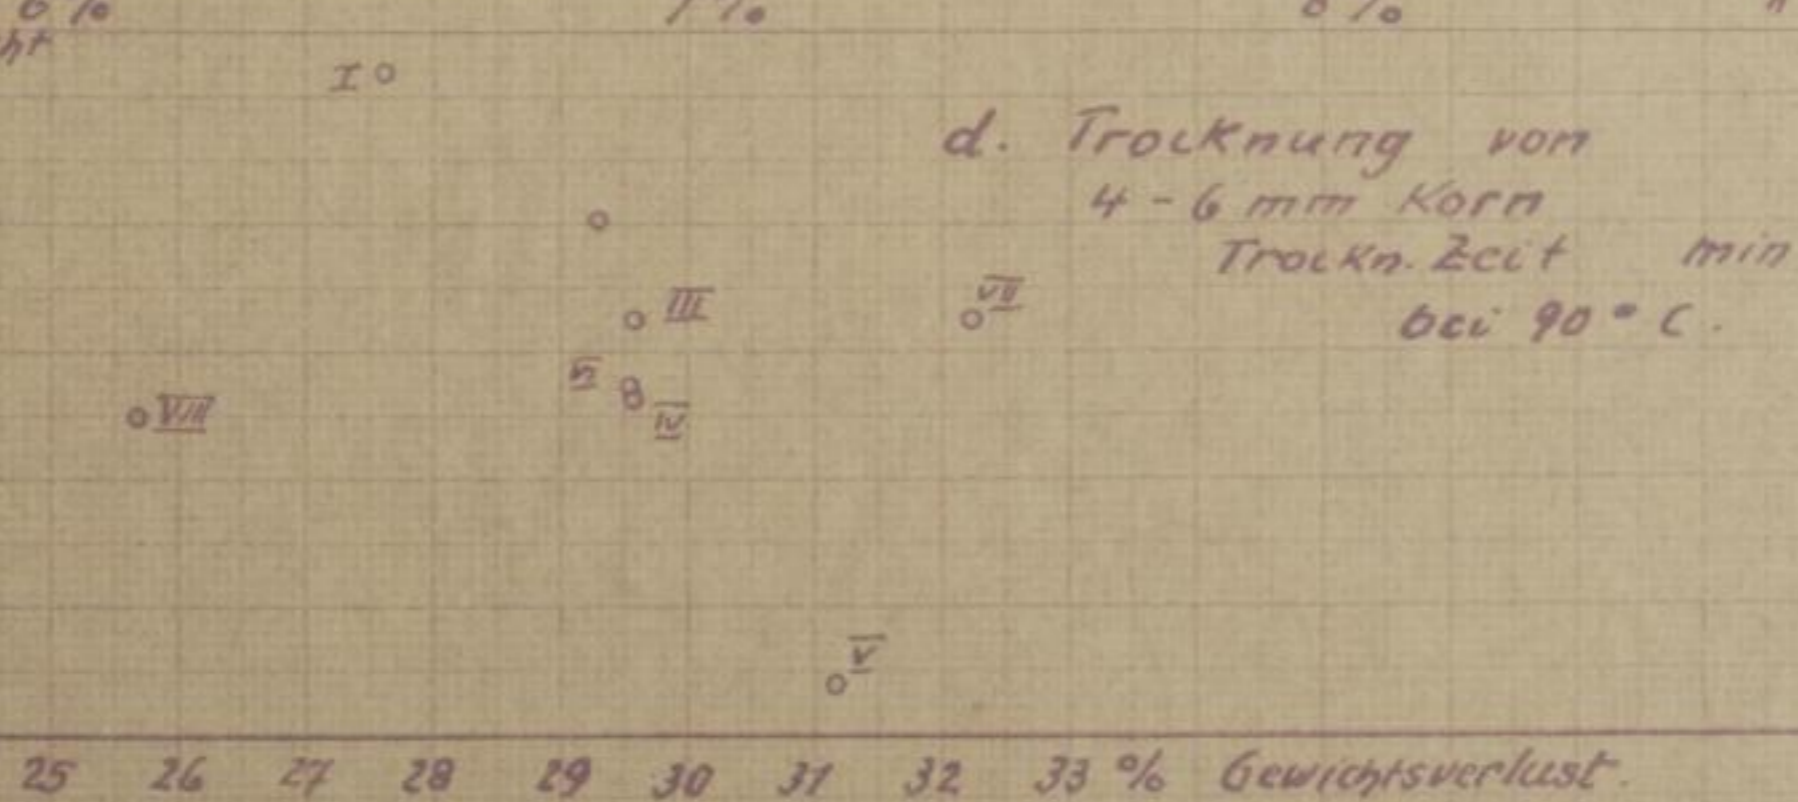 6% 7% 8%
ht
I
d. Trocknung von
4 - 6 mm Korn
Trockn. Zeit min
VII
III
bei 90° C.
VI
VIII
IV
V
25 26 27 28 29 30 31 32 33 % Gewichtsverlust.